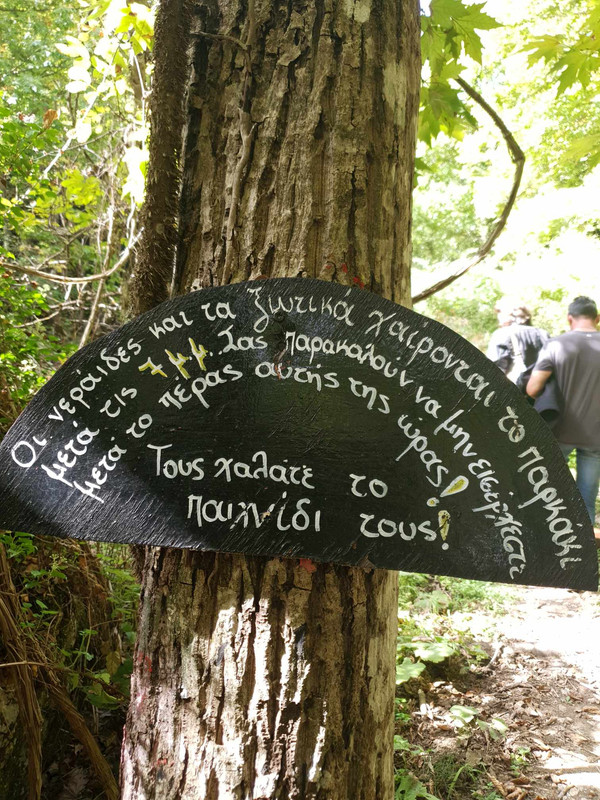 Οι νεράιδες και τα ξωτικά χαίρονται το παρκάκι
μετά τις 7 μμ... Σας παρακαλούν να μην εισέρχεστε
μετά το πέρας αυτής της ώρας!
Τους χαλάτε το
παιχνίδι τους!